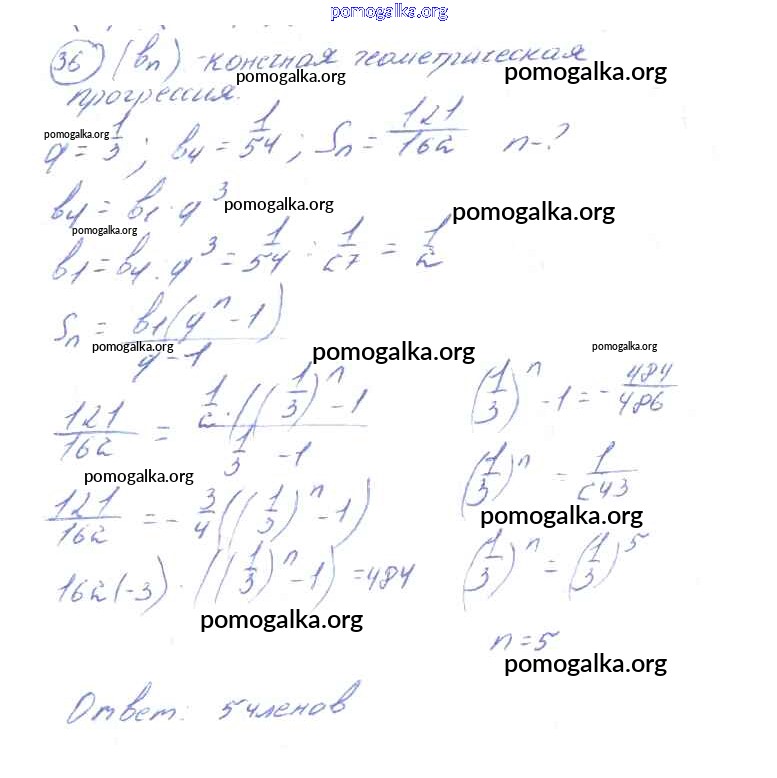 pomogalka.org
36 (bn) - конечная геометрическая
pomogalka.org pomogalka.org
прогрессия.
pomogalka.org
q = 1/3; b4 = 1/54; Sn = 121/162 n - ?
b4 = b1 · q^3
pomogalka.org pomogalka.org
pomogalka.org
b1 = b4 : q^3 = 1/54 : 1/27 = 1/2
Sn = b1(q^n - 1) / q - 1
pomogalka.org pomogalka.org pomogalka.org
121/162 = 1/2 · ((1/3)^n - 1 / 1/3 - 1
pomogalka.org
121/162 = - 3/4 ((1/3)^n - 1)
162(-3) · ((1/3)^n - 1) = 484
pomogalka.org
(1/3)^n - 1 = - 484/486
(1/3)^n = 1/243
pomogalka.org
(1/3)^n = (1/3)^5
n = 5
pomogalka.org
Ответ: 5 членов